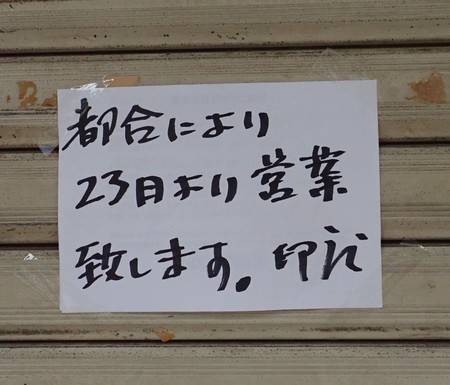 都合により
23日より営業
致します。印